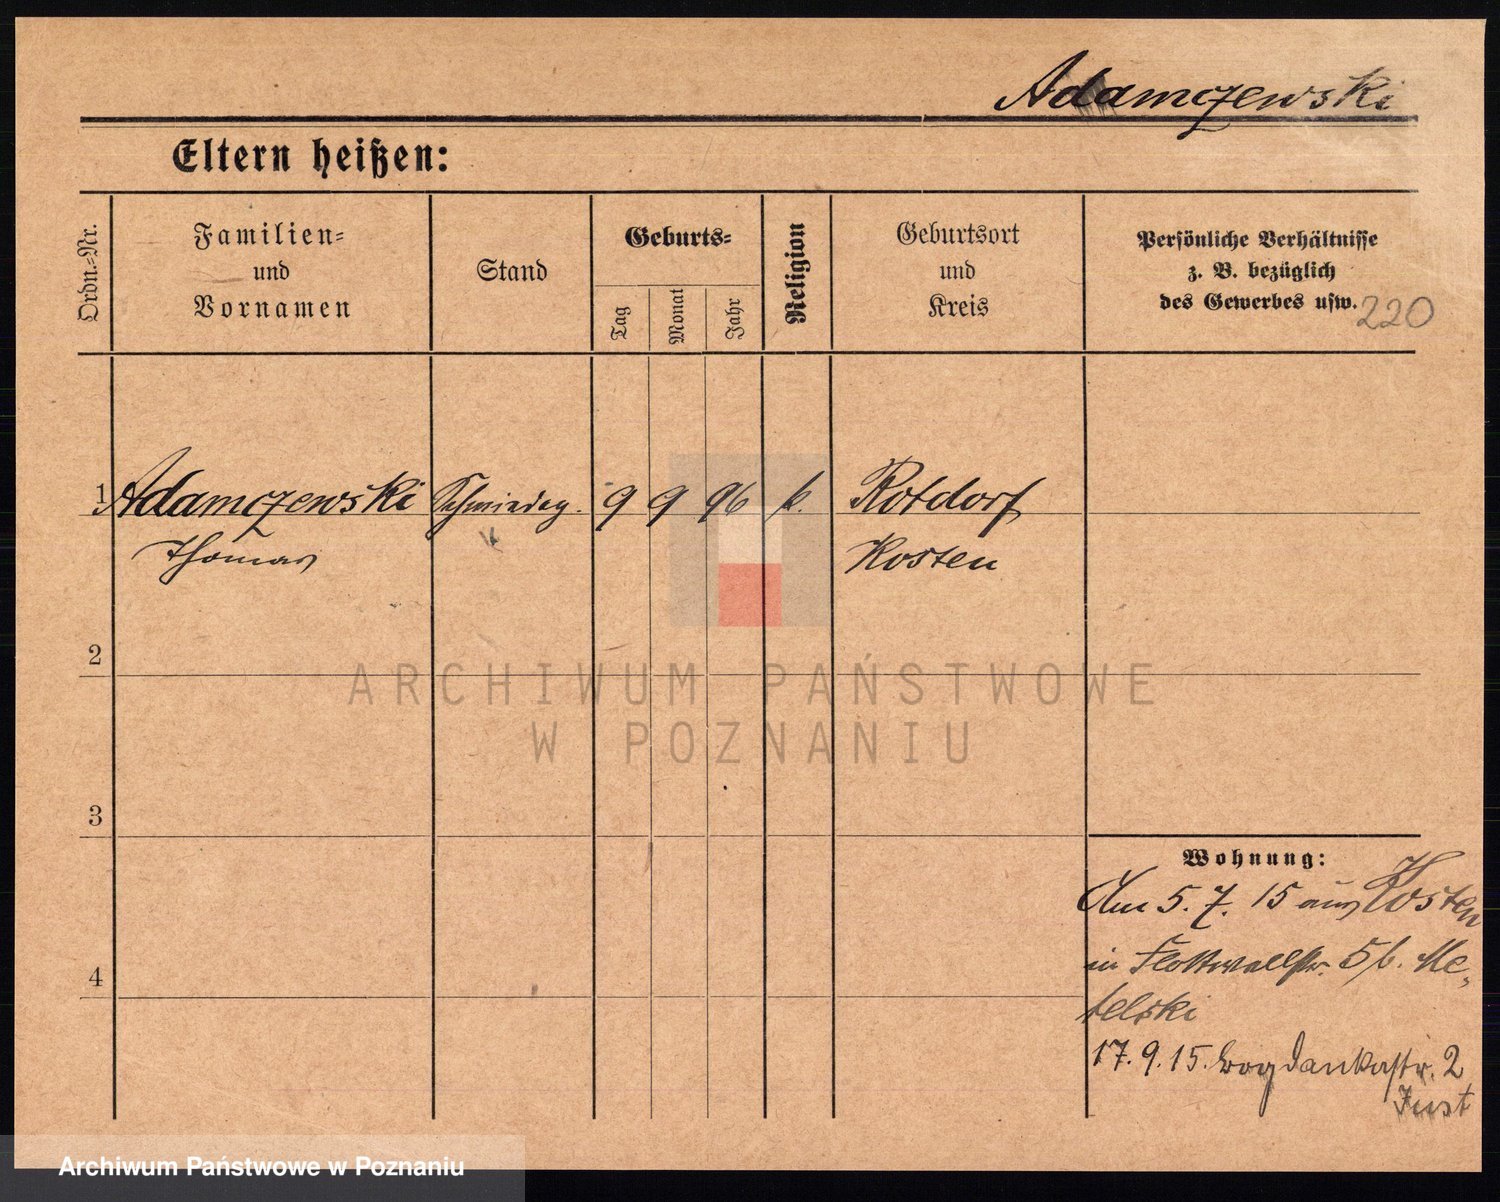 Adamczewski
Eltern heißen:
Ordn.-Nr.
Familien-
und
Vornamen
Stand
Geburts-
Tag
Monat
Jahr
Religion
Geburtsort
und
Kreis
Persönliche Verhältnisse
z. B. bezüglich
des Gewerbes usw.
220
1 Adamczewski Schmiedeg. 9 9 96 k. Rotdorf
Thomas Kosten
2
ARCHIWUM PAŃSTWOWE
W POZNANIU
3
Wohnung:
Am 5. 7. 15 aus Kosten
in Flottwellstr. 5 b. Me-
telski
4
17. 9. 15. Bogdankastr. 2
Just
Archiwum Państwowe w Poznaniu